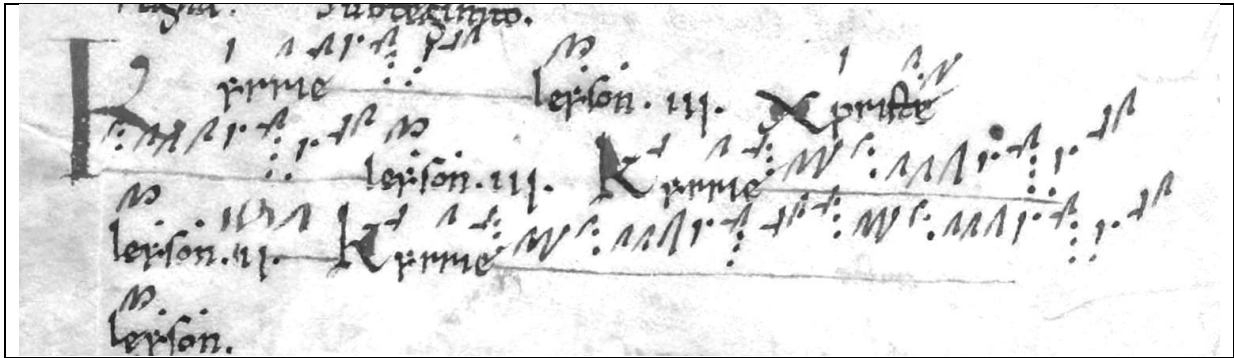 Kyrrie leyson. iii. Xpriste
leyson. iii. Kyrrie
leyson. ii. Kyrrie
leyson.